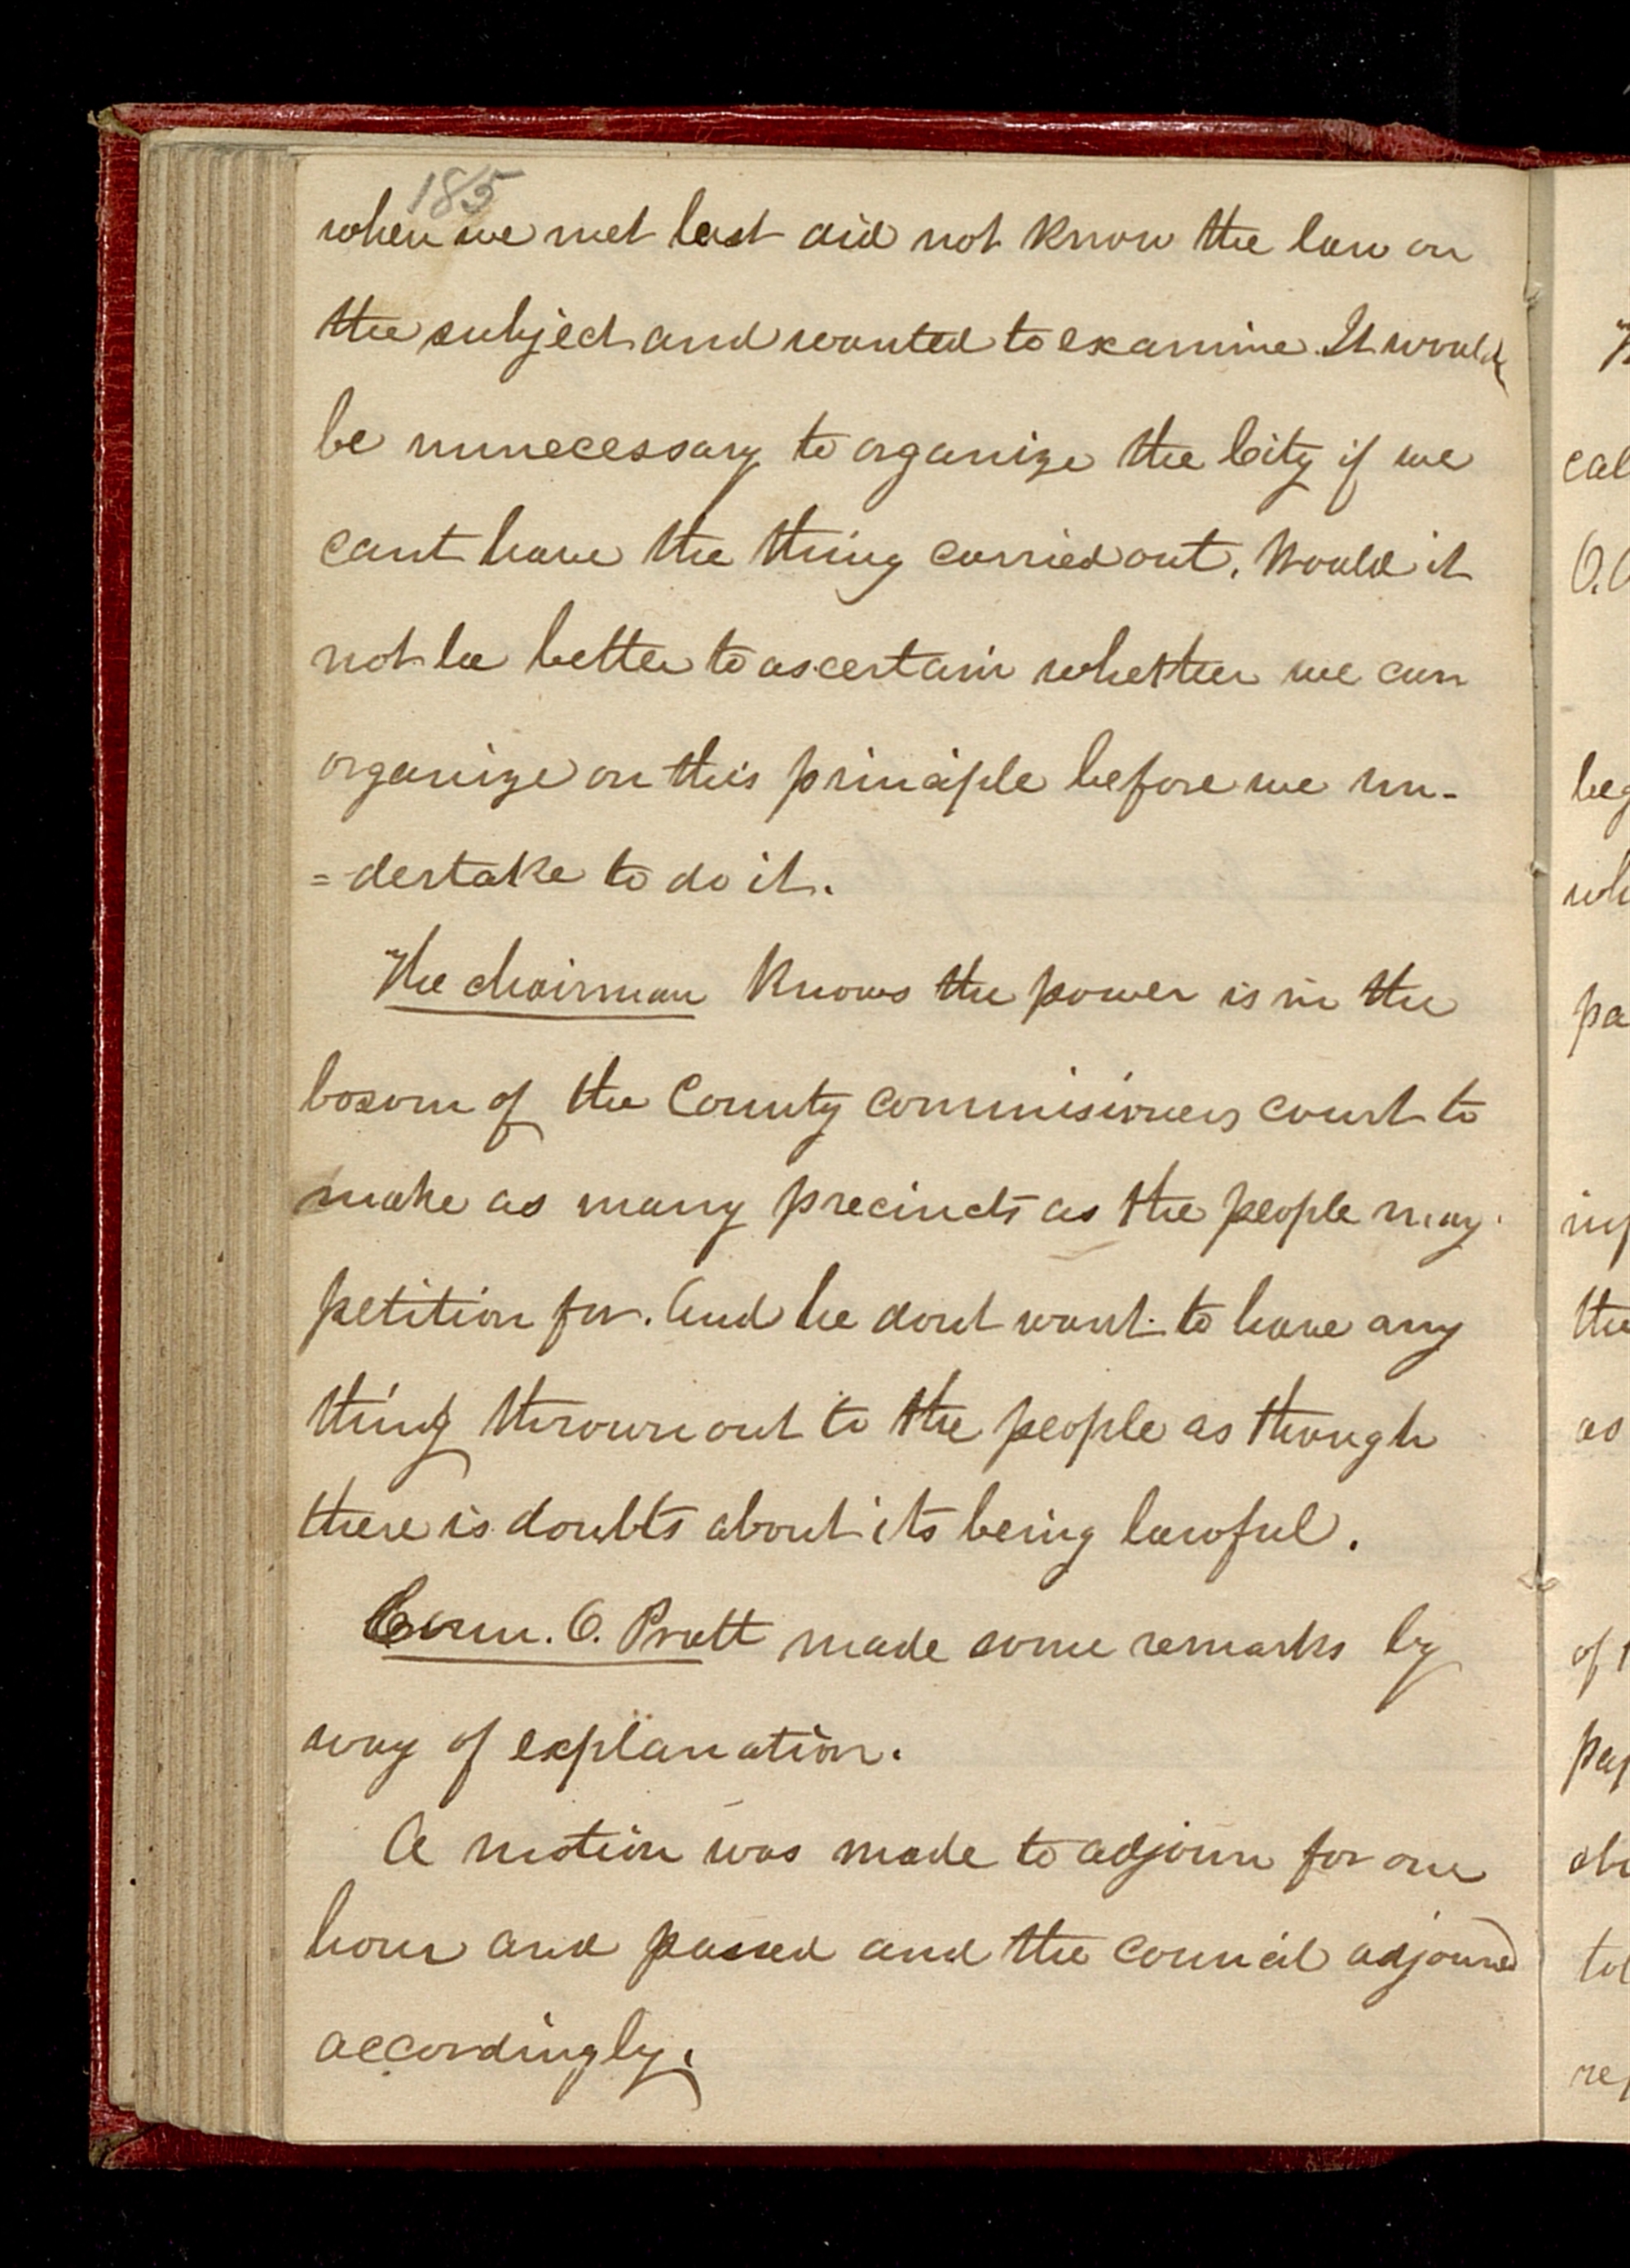 185
when we met last did not know the law on
the subject and wanted to examine. It would
be unnecessary to organize the City if we
cant have the thing carried out. Would it
not be better to ascertain whether we can
organize on this principle before we un-
=dertake to do it.
The chairman knows the power is in the
bosom of the County commisioners court to
make as many precincts as the people may
petition for. And he dont want to have any
thing thrown out to the people as though
there is doubts about its being lawful.
Coun. O. Pratt made some remarks by
way of explanation.
A motion was made to adjourn for one
hour and passed and the council adjourned
accordingly.
cal
O.
beg
wh
pa
the
as
of
pap
tol